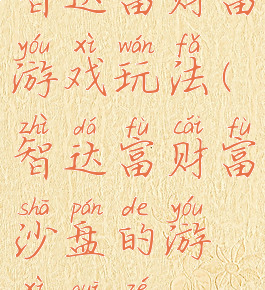 智达富财富
yóu xì wán fǎ
游戏玩法(
zhì dá fù cái fù
智达富财富
shā pán de yóu
沙盘的游
xì guī zé